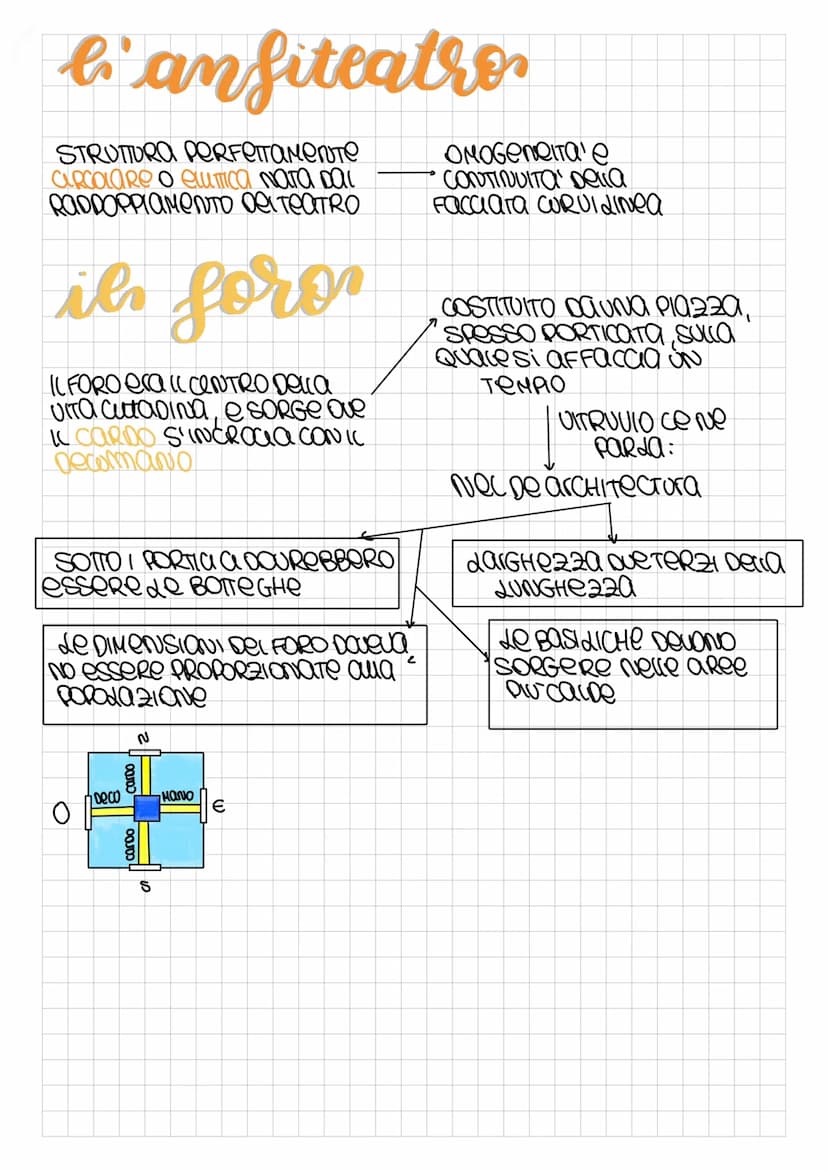 l'anfiteatro
STRUTTURA PERFETTAMENTE
CIRCOLARE O ELLITTICA NATA DAL
RADDOPPIAMENTO DEL TEATRO
OMOGENEITA' E
CONTINUITA' DELLA
FACCIATA CURVILINEA
il foro
COSTITUITO DA UNA PIAZZA,
SPESSO PORTICATA, SULLA
QUALE SI AFFACCIA UN
TEMPIO
IL FORO ERA IL CENTRO DELLA
VITA CITTADINA, E SORGE OVE
IL CARDO S'INCROCIA CON IL
DECUMANO
VITRUVIO CE NE
PARLA:
NEL DE ARCHITECTURA
SOTTO I PORTICI CI DOVREBBERO
ESSERE LE BOTTEGHE
LARGHEZZA DUE TERZI DELLA
LUNGHEZZA
LE DIMENSIONI DEL FORO DOVEVA
NO ESSERE PROPORZIONATE ALLA
POPOLAZIONE
LE BASILICHE DEVONO
SORGERE NELLE AREE
PIU' CALDE
N
CARDO
DECO MANO
O
E
CARDO
S